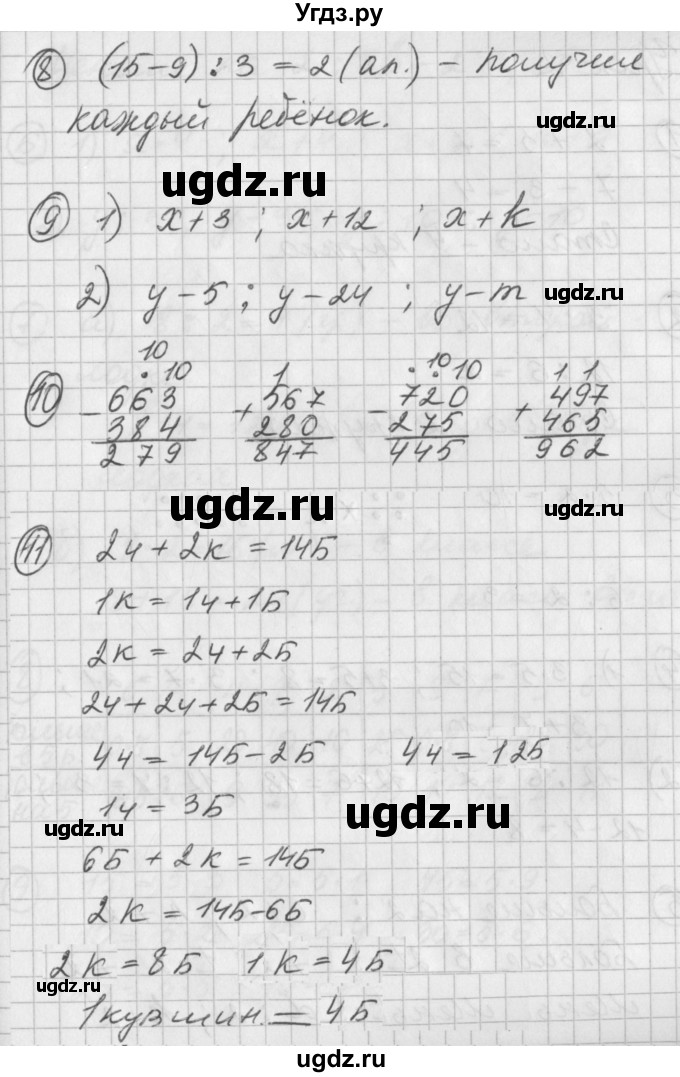 Угдз.ру
8 (15-9) : 3 = 2 (ап.) - получил
каждый ребёнок.
ugdz.ru
ugdz.ru
9 1) x+3 ; x+12 ; x+k
2) y-5 ; y-24 ; y-m
ugdz.ru
10 10 1 10 10 1 1
10 - 663 + 567 - 720 + 497
384 280 275 465
279 847 445 962
ugdz.ru
ugdz.ru
11 2ч + 2к = 14Б
1к = 1ч + 1Б
2к = 2ч + 2Б
2ч + 2ч + 2Б = 14Б
4ч = 14Б - 2Б 4ч = 12Б
1ч = 3Б
ugdz.ru
ugdz.ru
6Б + 2к = 14Б
2к = 14Б - 6Б
2к = 8Б 1к = 4Б
ugdz.ru
ugdz.ru
1 кувшин. = 4Б
ugdz.ru